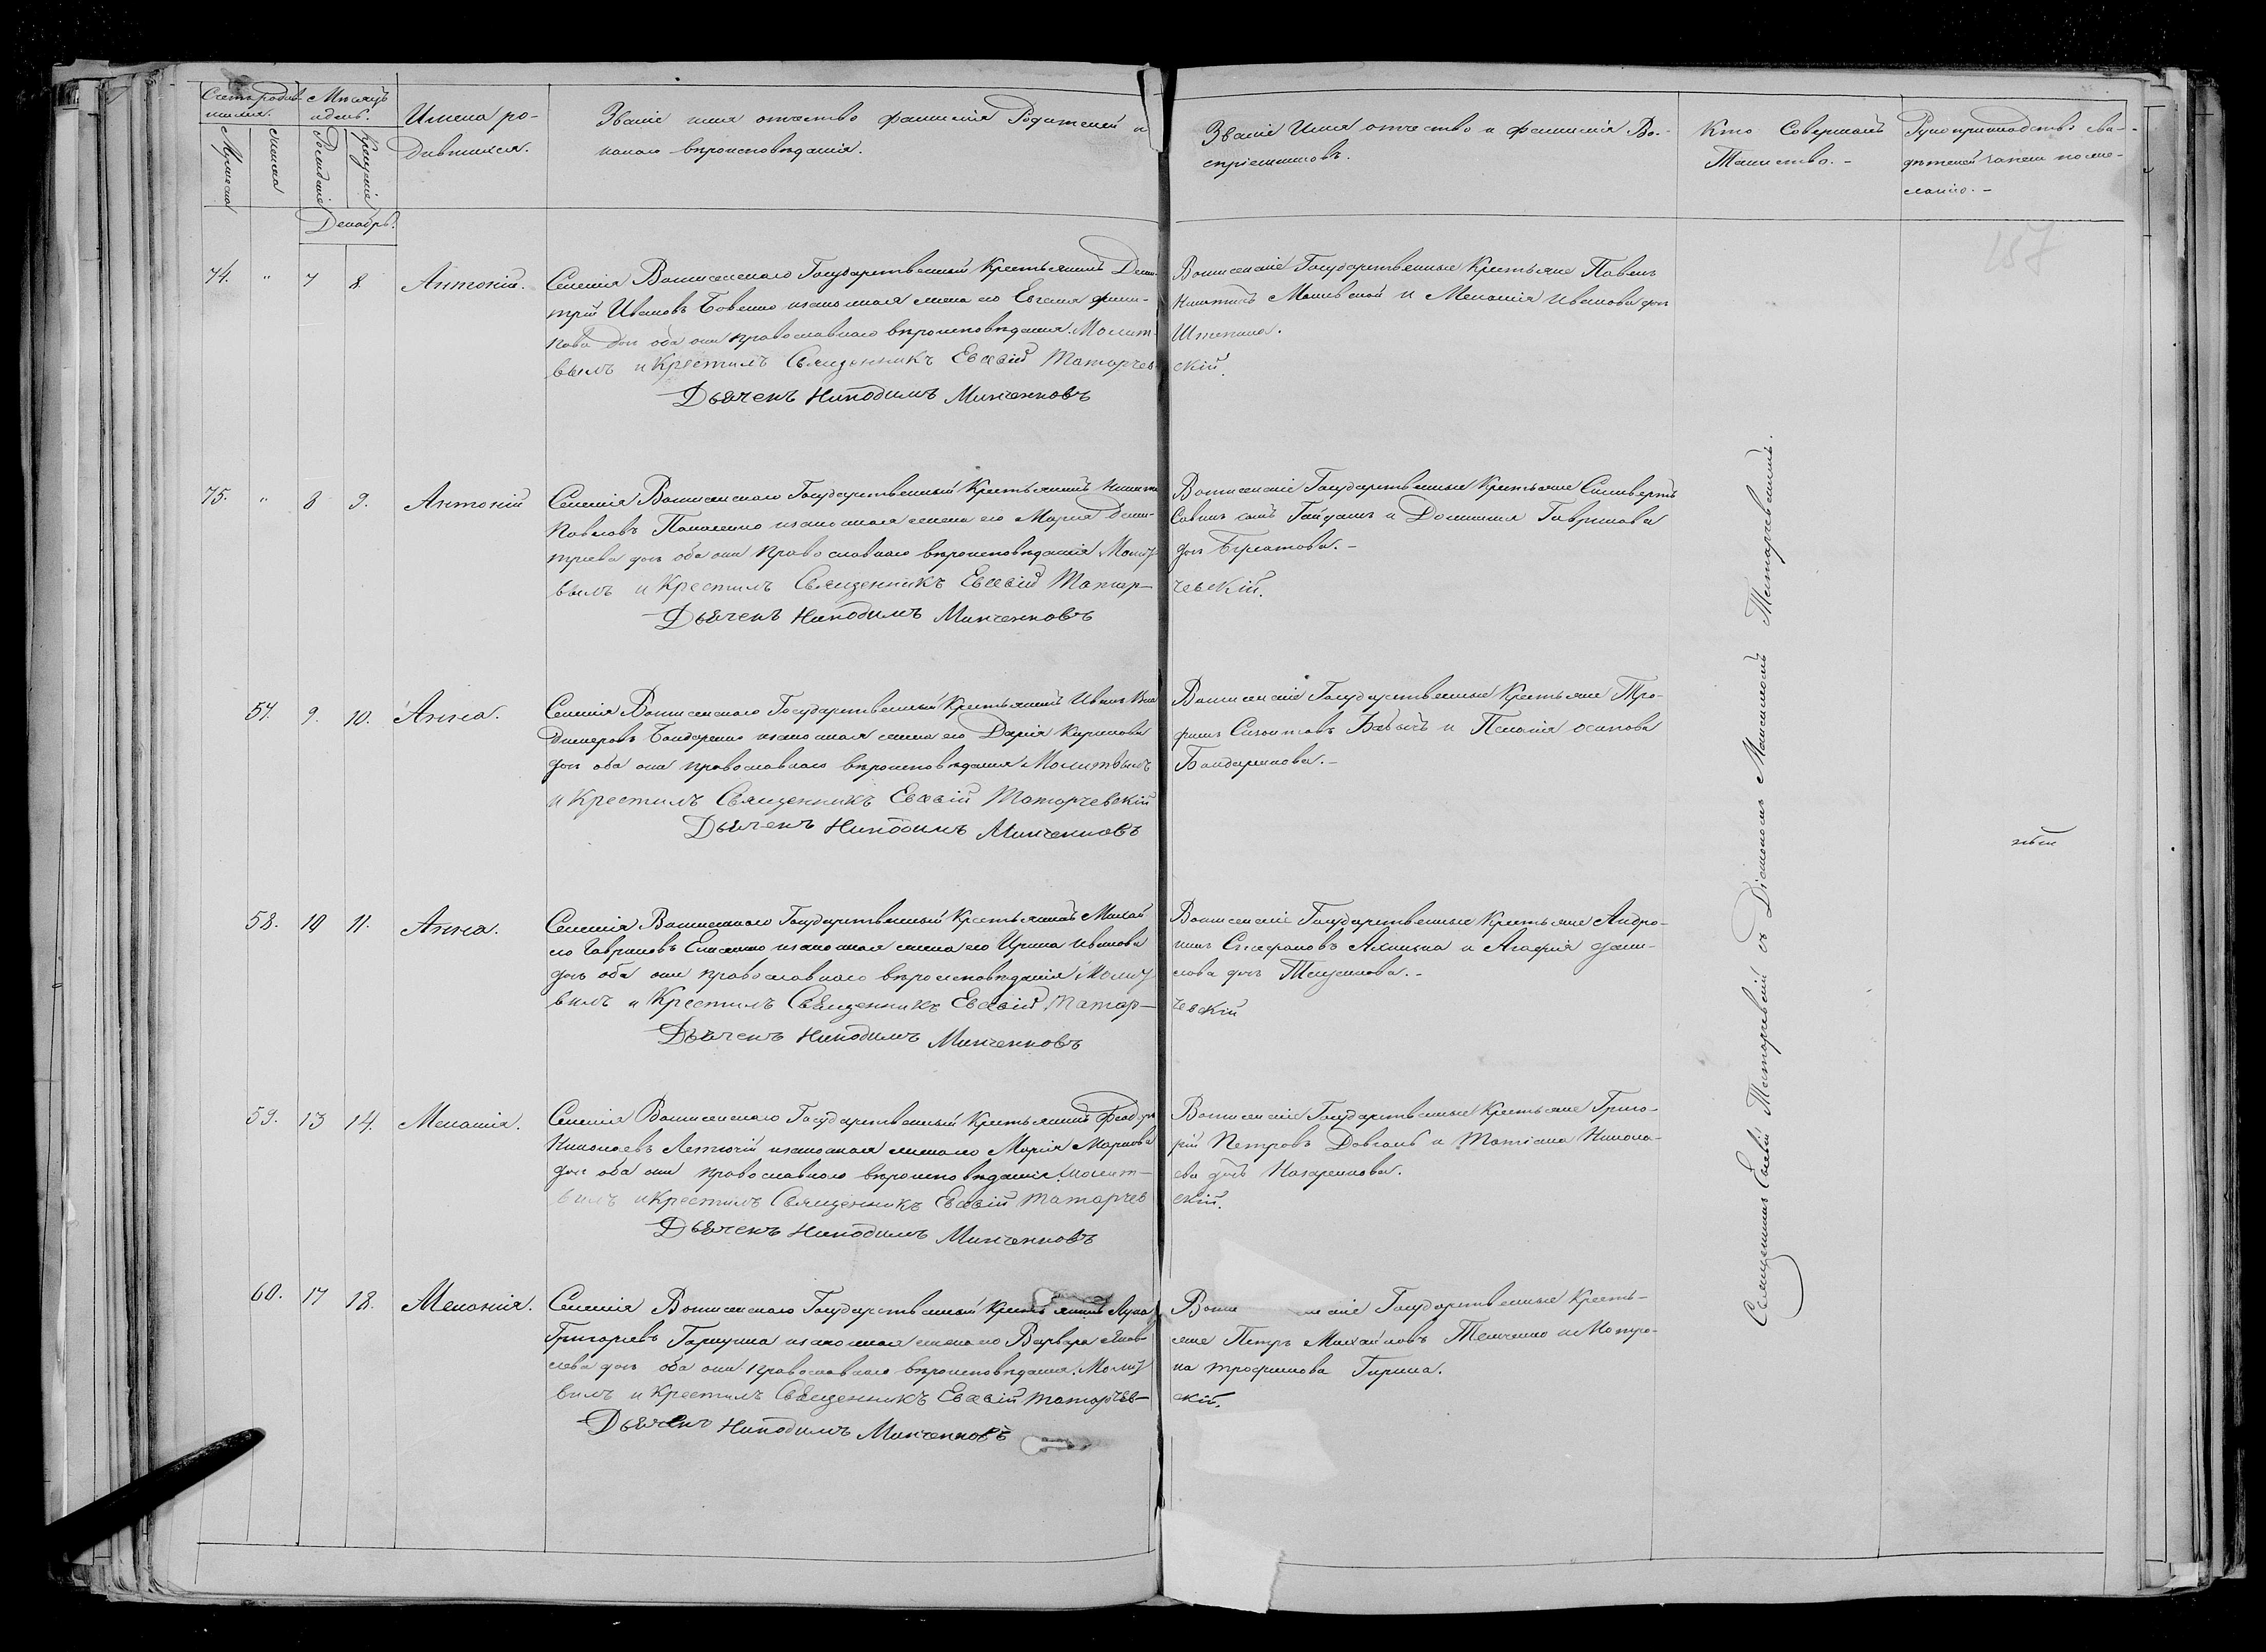 Счетъ родив-
шихся.
Мѣсяцъ
и день.
Мужеска
Женска
Рожденіе
Крещеніе
Имена ро-
дившихся.
Званіе имя отчество фамилія Родителей и
какого вѣроисповѣданія.
Званіе Имя отчество и фамилія Во-
спріемниковъ.
Кто Совершалъ
Таинство.-
Рукоприкладство сви-
дѣтелей записи по же-
ланію.-
Декабрь.
157
74. " 7 8. Антоній.
Селенія Государственный Крестьянинъ Дми-
трій Ивановъ Бовенко и законная жена его Евгенія фили-
пова дочь оба они православнаго вѣроисповѣданія. Молит-
вилъ и Крестилъ Священникъ Евсевій Таторчев-
Дьячекъ Никодимъ Минченковъ
Государственные Крестьяне Павелъ
Никитинъ и Меланія Иванова дочь
скій.
75. " 8 9. Антоній
Селенія Государственный Крестьянинъ Никита
Павловъ Панасенко и законная жена его Марія Дми-
тріева дочь оба они Православнаго вѣроисповѣданія Молит
вилъ и Крестилъ Священникъ Евсевій Татор-
Дьячекъ Никодимъ Минченковъ
Государственные Крестьяне Силивертъ
Савинъ сынъ Гайдамъ и Домникія Гаврилова
дочь
чевскій.
57. 9. 10. Анна.
Селенія Государственный Крестьянинъ Иванъ Вла
димеровъ Бондаренко и законная жена его Дарія Кирилова
дочь оба они православнаго вѣроисповѣданія Молитвилъ
и Крестилъ Священникъ Евсевій Таторчевскій
Дьячекъ Никодимъ Минченковъ
Государственные Крестьяне Тро-
фимъ Бабычъ и Пелагія осипова
Бондаренкова.-
58. 10 11. Анна.
Селенія Государственный Крестьянинъ Михай
ло Гавриловъ и законная жена его Ирина Иванова
дочь оба они православнаго вѣроисповѣданія Молит
вилъ и Крестилъ Священникъ Евсевій Татор-
Дьячекъ Никодимъ Минченковъ
Государственные Крестьяне Андро-
никъ Стефановъ и Агафія дани-
лова дочь
чевскій
59. 13 14. Меланія.
Селенія Государственный Крестьянинъ Феодоръ
Николаевъ Летючій и законная жена его Марія Маркова
дочь оба они православнаго вѣроисповѣданія. Молит-
вилъ и Крестилъ Священникъ Евсевій Таторчев
Дьячекъ Никодимъ Минченковъ
Государственные Крестьяне Григо-
рій Петровъ Довгаль и Татіана Никола-
ева дочь Назаренкова.
скій.
60. 17 18. Меланія.
Селенія Государственный Крестьянинъ Лука
Григорьевъ Гаркуша и законная жена его Варвара Яков-
лева дочь оба они православнаго вѣроисповѣданія. Молит
вилъ и Крестилъ Священникъ Евсевій Таторчев-
Дьячекъ Никодимъ Минченковъ
Государственные Кресть-
яне Петръ Михайловъ и Мотро-
на трофимова Гирина.
скій.
Священникъ Евсевій Таторчевскій съ Діакономъ Таторчевскимъ.